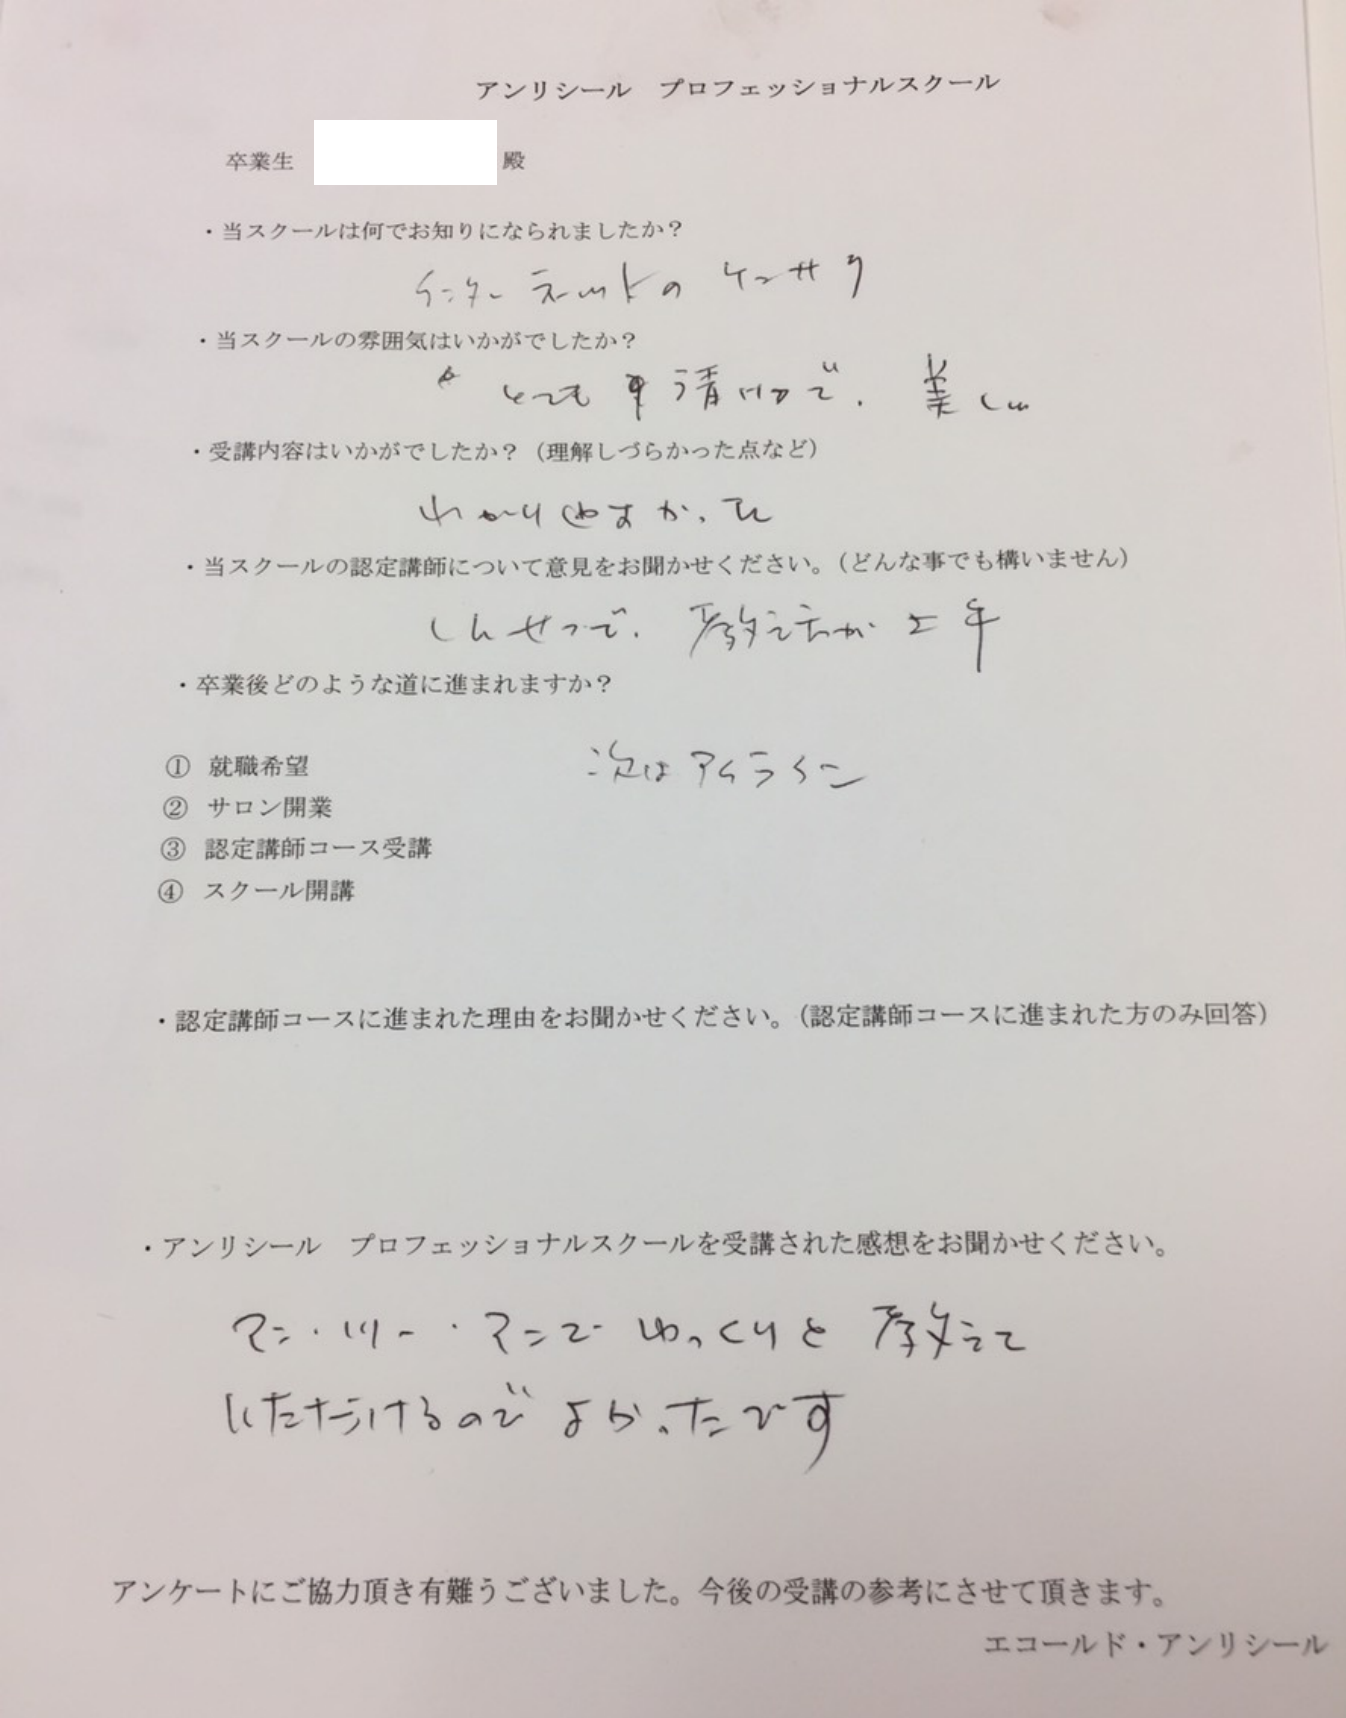 アンリシール　プロフェッショナルスクール
卒業生　殿
・当スクールは何でお知りになられましたか？
インターネットのケンサク
・当スクールの雰囲気はいかがでしたか？
とても 清けつで、美しい
・受講内容はいかがでしたか？（理解しづらかった点など）
わかりやすかった
・当スクールの認定講師について意見をお聞かせください。（どんな事でも構いません）
しんせつで、教え方が上手
・卒業後どのような道に進まれますか？
次はアイライン
① 就職希望
② サロン開業
③ 認定講師コース受講
④ スクール開講
・認定講師コースに進まれた理由をお聞かせください。（認定講師コースに進まれた方のみ回答）
・アンリシール　プロフェッショナルスクールを受講された感想をお聞かせください。
マン・ツー・マンで ゆっくりと 教えて
いただけるので よかったです
アンケートにご協力頂き有難うございました。今後の受講の参考にさせて頂きます。
エコールド・アンリシール